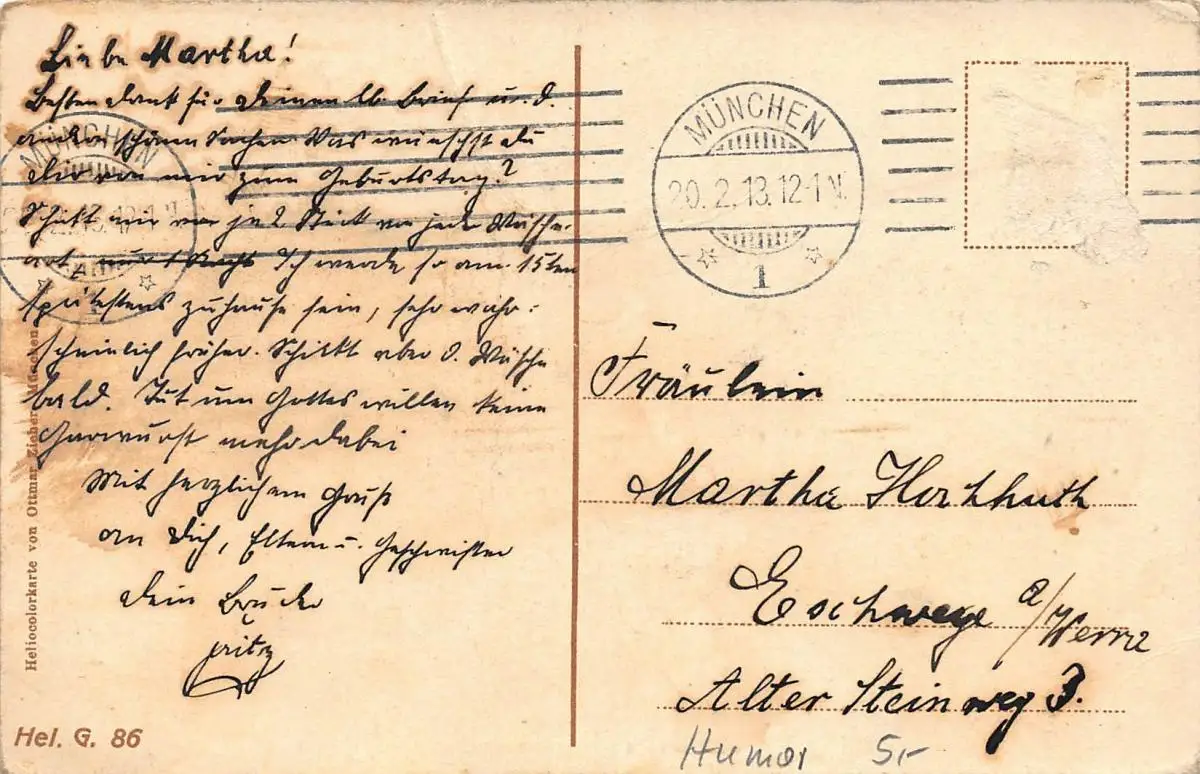 Liebe Martha!
Besten Dank für Deinen lb. Brief u. d.
andern schönen Sachen. Was wünschst du
Dir von mir zum Geburtstag?
Schickt mir nur je 2 Stück von jeder Wäsche-
art, Ich werde so am 15ten
spätestens zuhause sein, sehr wahr-
scheinlich früher. Schickt aber d. Wäsche
bald. Tut um Gottes willen keine
Garwurst mehr dabei
Mit herzlichem Gruß
an Dich, Eltern u. Geschwister
Dein Bruder
Fritz
Heliocolorkarte von Ottmar Zieher, München
Hel. G. 86
MÜNCHEN
MÜNCHEN
20.2.13.12-1 N.
1
Fräulein
Martha Hochhuth
Eschwege a/Werra
Alter Steinweg 3.
Humor 5,-